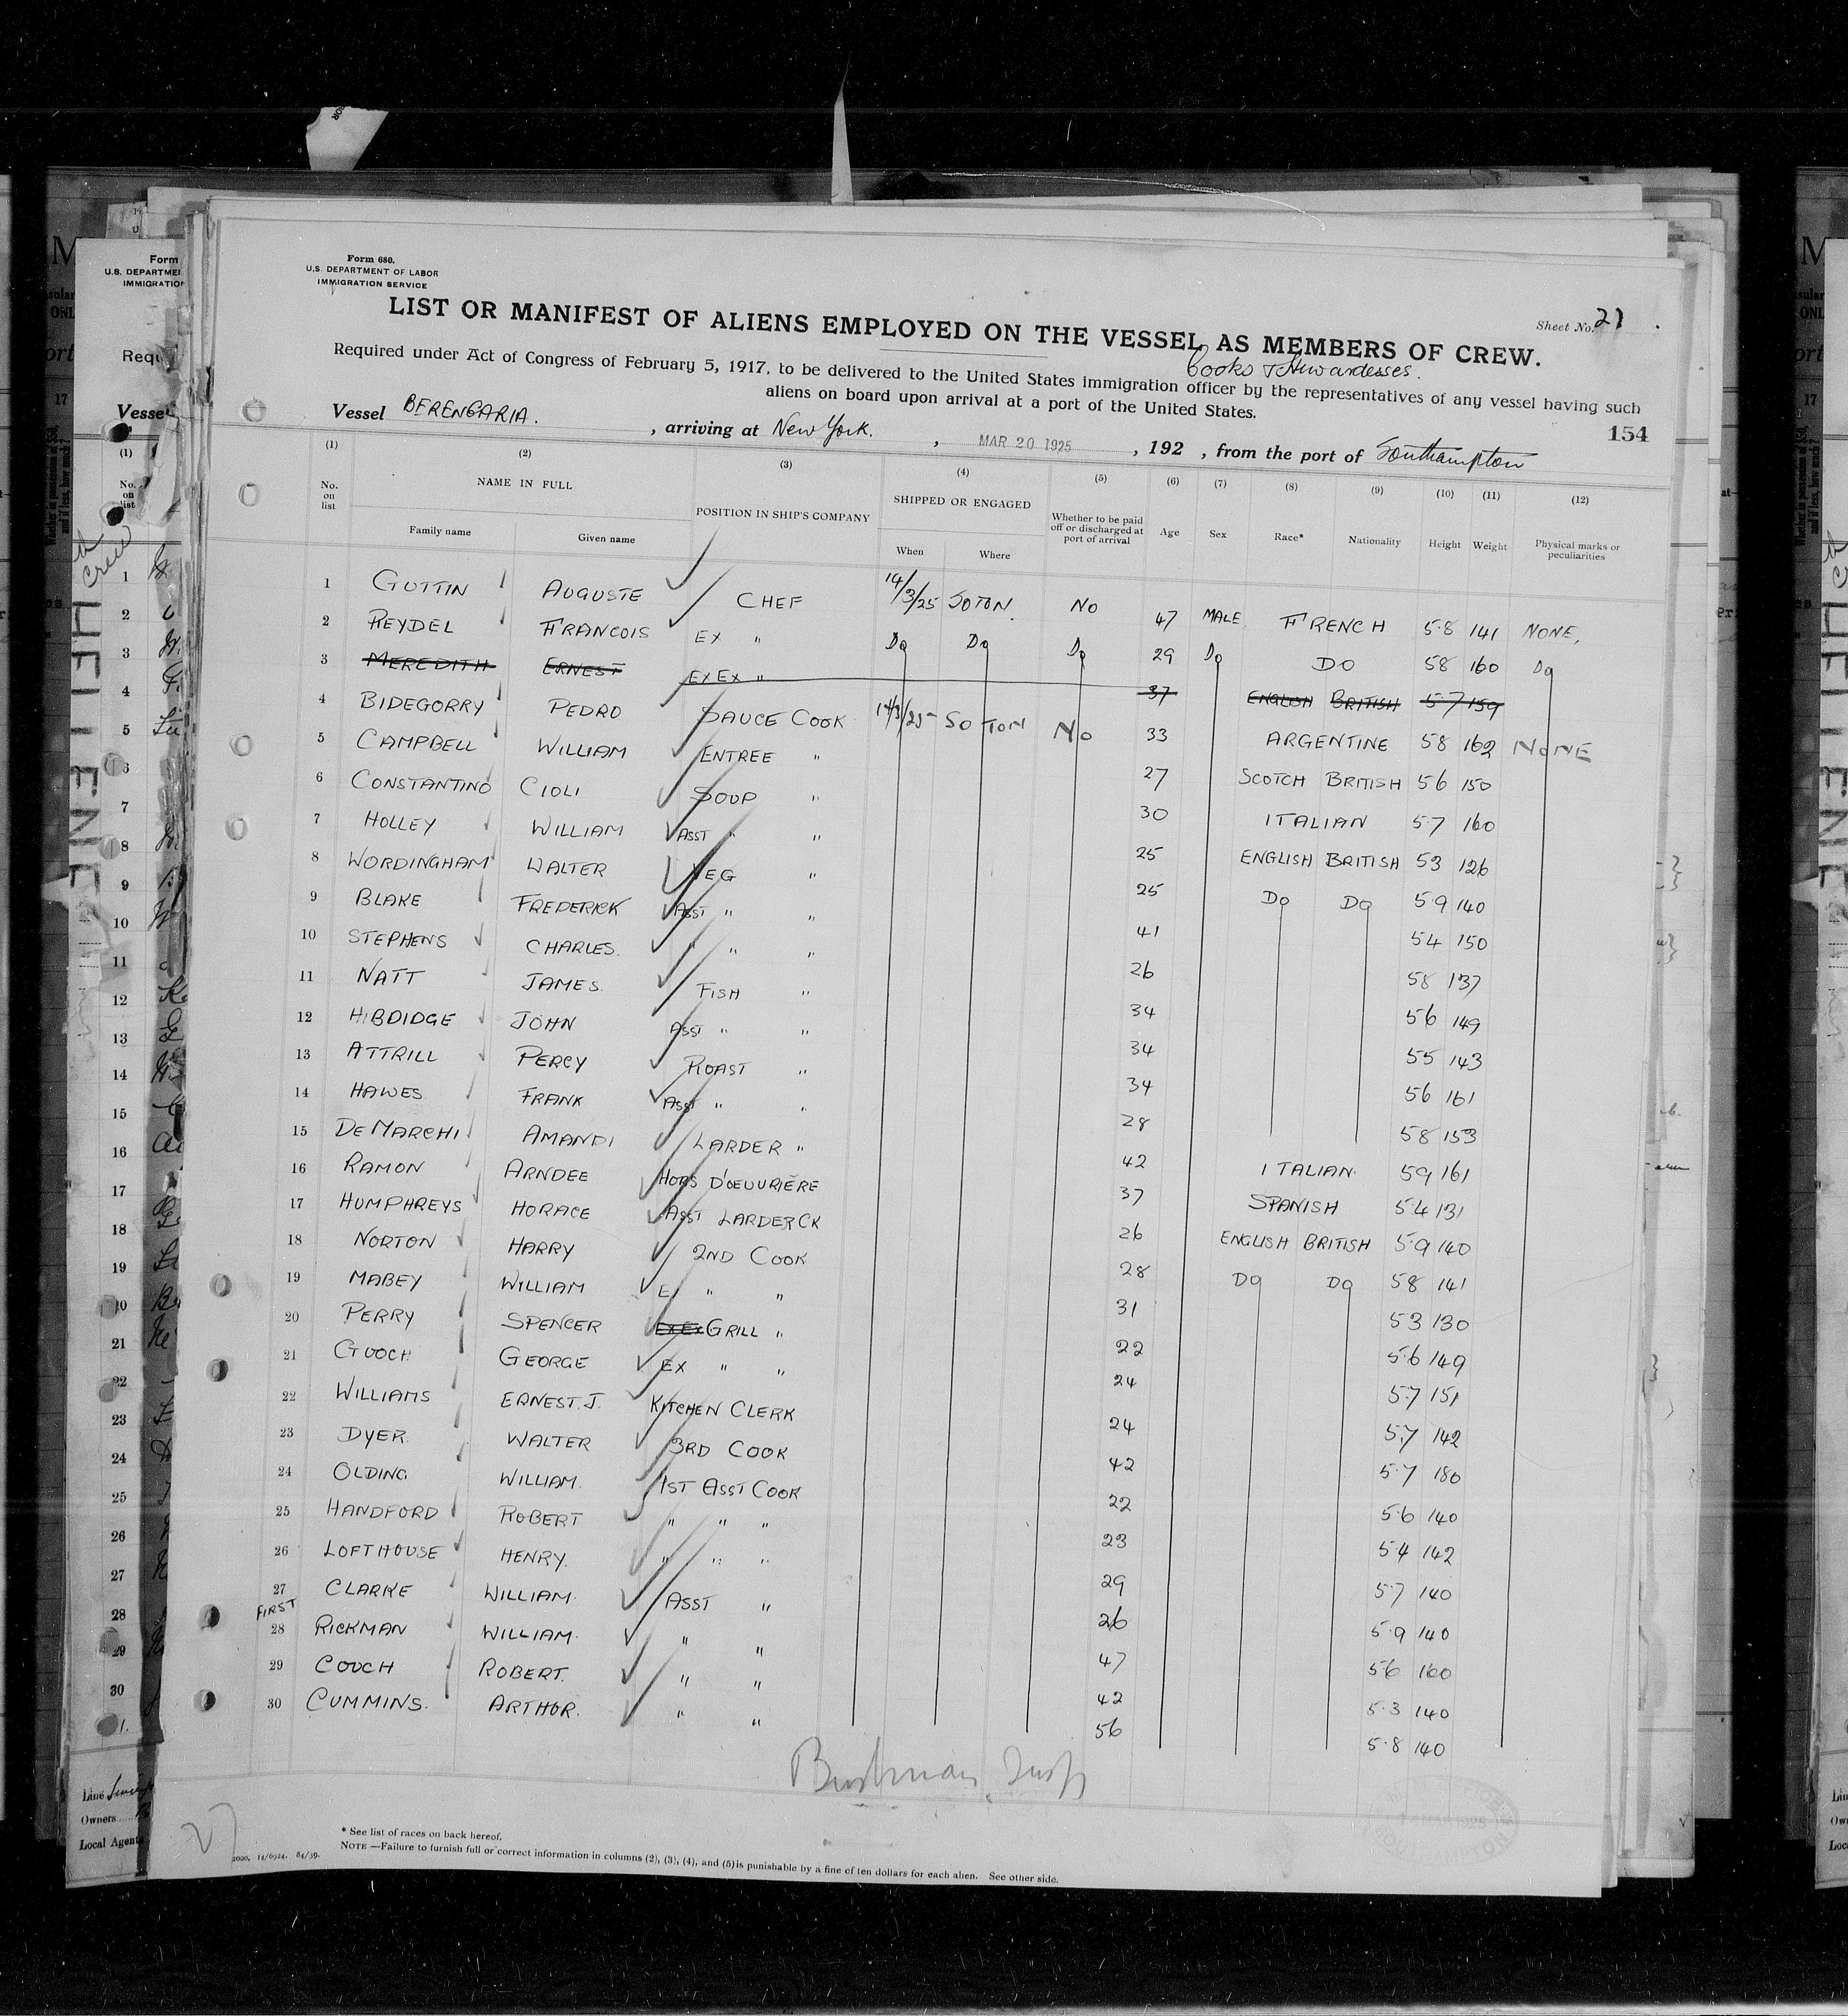 Form 680.
U.S. DEPARTMENT OF LABOR
IMMIGRATION SERVICE
Sheet No. 21
LIST OR MANIFEST OF ALIENS EMPLOYED ON THE VESSEL AS MEMBERS OF CREW.
Cooks & Stewardesses.
Required under Act of Congress of February 5, 1917, to be delivered to the United States immigration officer by the representatives of any vessel having such
aliens on board upon arrival at a port of the United States.
154
Vessel BERENGARIA. , arriving at New York. , MAR 20 1925 , 192 , from the port of Southampton
(1) (2) (3) (4) (5) (6) (7) (8) (9) (10) (11) (12)
No. on list NAME IN FULL Family name Given name POSITION IN SHIP'S COMPANY SHIPPED OR ENGAGED When Where Whether to be paid off or discharged at port of arrival Age Sex Race* Nationality Height Weight Physical marks or peculiarities
1 GUTTIN AUGUSTE CHEF 14/3/25 SOTON. NO 47 MALE FRENCH 5.8 141 NONE,
2 REYDEL FRANCOIS EX " DO DO DO 29 DO DO 58 160 DO
3 MEREDITH ERNEST EX EX " 37 ENGLISH BRITISH 5.7 159
4 BIDEGORRY PEDRO SAUCE COOK 14/3/25 SO TON NO 33 ARGENTINE 58 162 NONE
5 CAMPBELL WILLIAM ENTREE " 27 SCOTCH BRITISH 56 150
6 CONSTANTINO CIOLI SOUP " 30 ITALIAN 57 160
7 HOLLEY WILLIAM ASST " " 25 ENGLISH BRITISH 53 126
8 WORDINGHAM WALTER VEG " 25 DO DO 5.9 140
9 BLAKE FREDERICK ASST " " 41 54 150
10 STEPHENS CHARLES. " " " 26 58 137
11 NATT JAMES FISH " 34 56 149
12 HIBDIDGE JOHN ASST " " 34 55 143
13 ATTRILL PERCY ROAST " 34 56 161
14 HAWES FRANK ASST " " 28 58 153
15 DE MARCHI AMANDI LARDER " 42 ITALIAN 59 161
16 RAMON ARNDEE HORS D'OEUVRIÈRE 37 SPANISH 5.4 131
17 HUMPHREYS HORACE ASST LARDER CK 26 ENGLISH BRITISH 5.9 140
18 NORTON HARRY 2ND COOK 28 DO DO 58 141
19 MABEY WILLIAM EX " " 31 53 130
20 PERRY SPENCER EX EX GRILL " 22 5.6 149
21 GOOCH GEORGE EX " " 24 5.7 151
22 WILLIAMS ERNEST. J. KITCHEN CLERK 24 5.7 142
23 DYER WALTER 3RD COOK 42 5.7 180
24 OLDING WILLIAM. 1ST ASST COOK 22 5.6 140
25 HANDFORD ROBERT " " " 23 5.4 142
26 LOFTHOUSE HENRY. " " " 29 5.7 140
27 CLARKE WILLIAM. ASST " 26 5.9 140
FIRST
28 RICKMAN WILLIAM. " " 47 5.6 160
29 COUCH ROBERT. " " 42 5.3 140
30 CUMMINS. ARTHUR. " " 56 5.8 140
27
* See list of races on back hereof.
NOTE —Failure to furnish full or correct information in columns (2), (3), (4), and (5) is punishable by a fine of ten dollars for each alien. See other side.
2000, 14/6924. 84/39.